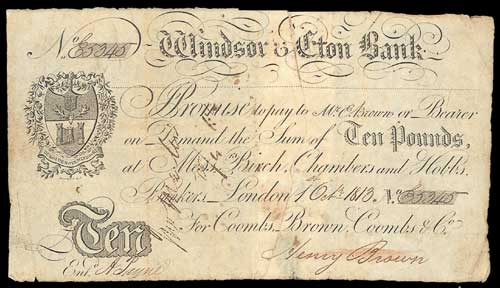 No. E5345 Windsor & Eton Bank
Promise to pay to Mr. C. Brown or Bearer
on Demand the Sum of Ten Pounds,
at Messrs. Birch, Chambers and Hobbs,
Bankers, London 1 Octr. 1813 No. E5345
For Coombs, Brown, Coombs & Co.
Ten
Entd. Payne
Henry Brown